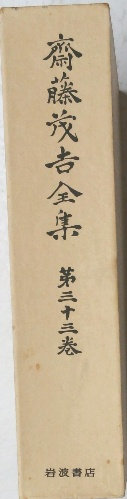 齋藤茂吉全集
第三十三巻
岩波書店